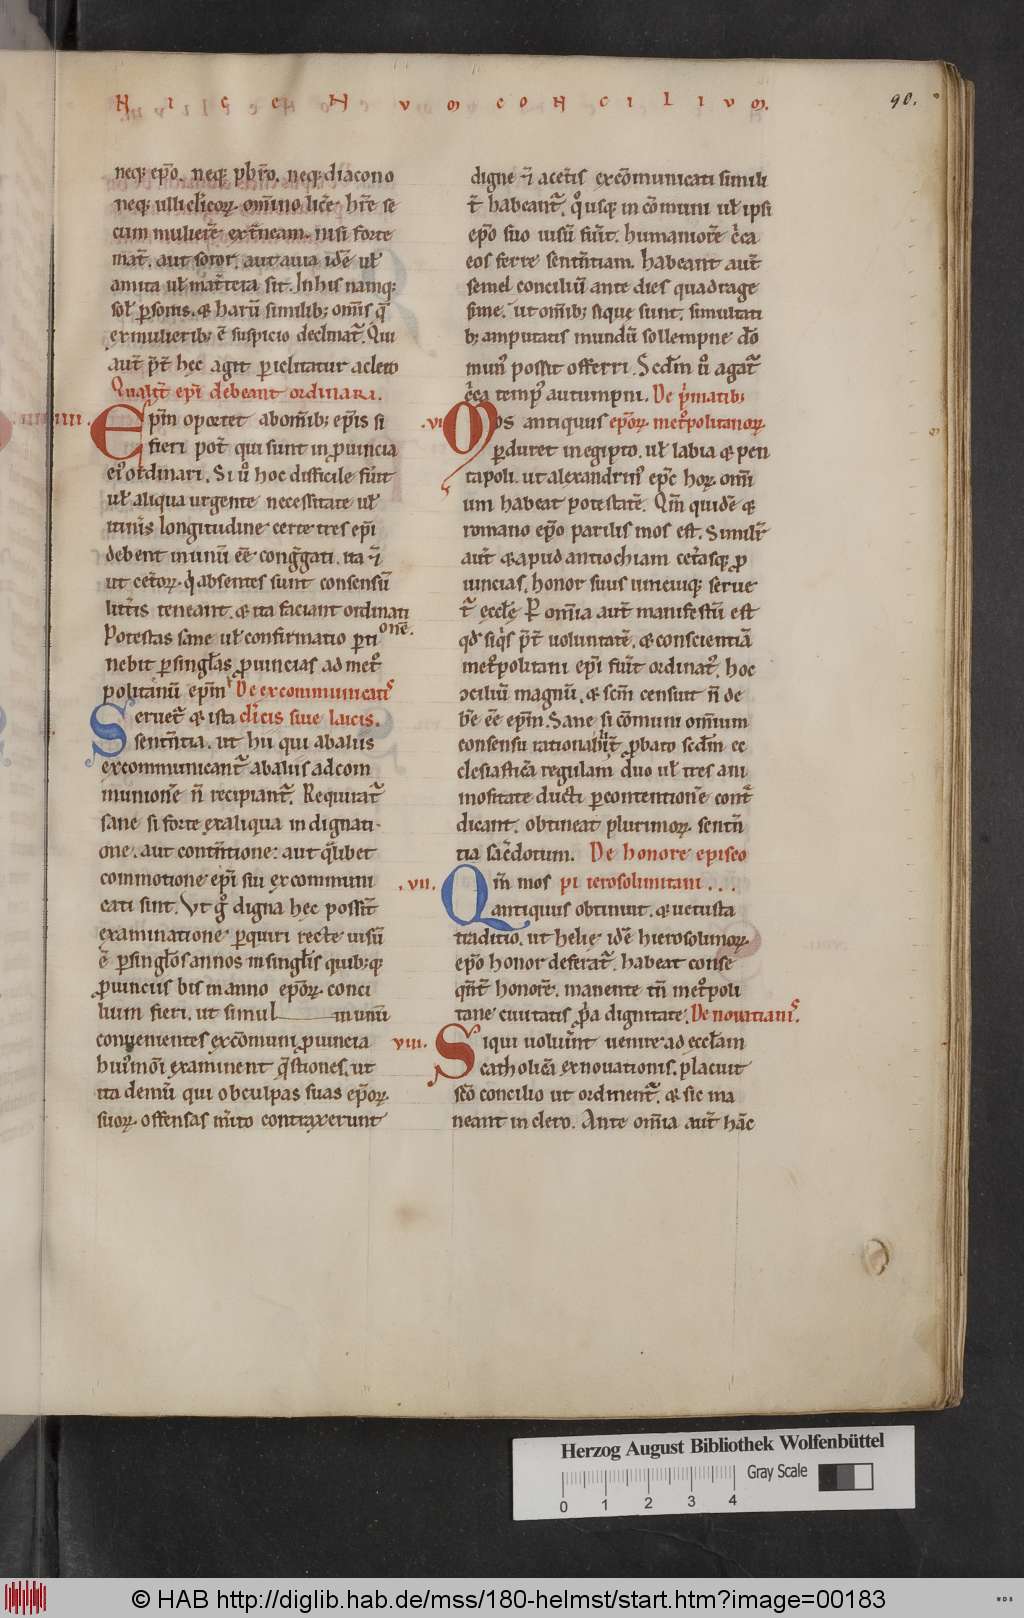 NICENUM CONCILIUM.
90.
neq; ep̄o. neq; pbr̄o. neq; diacono
neq; ulli cl̄icoꝝ. om̄ino licꝫ hr̄e se
cum mulierē ext̄neam. nisi forte
mat̄. aut soror. aut auia idē ul̄
amita ul̄ mat̄tera sit. In his namq;
sol̄ ꝑsonis. & harū similib; om̄is q̄
ex mulierib; ē suspicio declinat̄. Qui
aut̄ p̄t̄ hęc agit ꝑiclitatur a clero
Qualit̄ ep̄i debeant ordinari.
.IIII. Ep̄m oportet ab om̄ib; ep̄is si
fieri pot̄ qui sunt in ꝓuincia
ei᷒ ordinari. Si ů hoc difficile fuīt
ul̄ aliqua urgente necessitate ul̄
itin̄is longitudine certe tres ep̄i
debent in unū eē conḡgati. ita ⁊̄
ut cet̄oꝝ. q̇ absentes sunt consensū
litt̄is teneant. & ita faciant ordinati
onē.
Potestas sane ul̄ confirmatio ꝑti
nebit ꝑ singlas ꝓuincias ad met᷒
politanū ep̄m De excommunicatis
Seruet̄ & ista cl̄icis siue laicis.
sentn̄tia. ut hii qui ab aliis
excommunicant̄ ab aliis ad com
munionē n̄ recipiant̄. Requirat̄
sane si forte ex aliqua indignati
one. aut contn̄tione: aut q̄libet
commotione ep̄i sui excommuni
cati sint. Ut g̊ digna hęc possīt
examinatione ꝑquiri recte uisū
ē ꝑ singl̄os annos in singl̄is quib;q;
ꝓuinciis bis in anno ep̄oꝝ. conci
lium fieri. ut simul in unū
conuenientes ex cōmuni ꝓuincia
hui᷒mōi examinent q̄stiones. ut
ita demū qui ob culpas suas ep̄oꝝ.
suoꝝ. offensas m̄ito contraxerunt
digne ⁊̄ a cet̄is excōmunicati simili
t̄ habeant̄. q̊usq; in cōmuni ul̄ ipsi
ep̄o suo uisū fuīt. humaniorē c̄ca
eos ferre sentn̄tiam. habeant aut̄
semel conciliū ante dies quadrage
sime. ut om̄ib; siq̇ sunt. simultati
b; amputatis mundū sollempne d̄o
mun᷒ possit offerri. Sed̄m ů agat̄
c̄ca temp᷒ autumpni. De p̄matib;
.VI. Mos antiquus ep̄oꝝ. met᷒politanoꝝ.
ꝑduret in egipto. ul̄ labia & pen
tapoli. ut alexandrin᷒ ep̄c hoꝝ. om̄i
um habeat potestatē. Qm̄ quidē &
romano ep̄o parilis mos est. Similit̄
aut̄ & apud antiochiam cet̄asq; ꝓ
uincias. honor suus unicuiq; serue
t̄ eccl̄ę Ꝑ om̄ia aut̄ manifestū est
qd̄ siq̇s p̄t̄ uoluntatē. & conscientiā
met᷒politani ep̄i fuīt ordinat᷒. hoc
ↄciliū magnū. & sc̄m censuit n̄ de
b̄e eē ep̄m. Sane si cōmuni om̄ium
consensu rationabil̄it̄ ꝓbato sed̄m ec
clesiasticā regulam duo ul̄ tres ani
mositate ducti ꝑ contentionē cont̄
dicant. obtineat plurimoꝝ. sentn̄
tia sac̄dotum. De honore episco
.VII. Qm̄ mos pi ierosolimitani...
antiquus obtinuit. & uetusta
traditio. ut helię idē hierosolimoꝝ.
ep̄o honor deferat̄. habeat conse
qn̄t̄ honorē. manente tn̄ met᷒poli
tane ciuitatis ꝓ̄a dignitate. De nouatianis.
VIII. Siqui uolūint uenire ad eccl̄am
catholicā ex nouationis. placuit
sc̄o concilio ut ordinent̄. & sic ma
neant in clero. Ante om̄ia aut̄ hāc
Herzog August Bibliothek Wolfenbüttel
Gray Scale
0 1 2 3 4
© HAB http://diglib.hab.de/mss/180-helmst/start.htm?image=00183